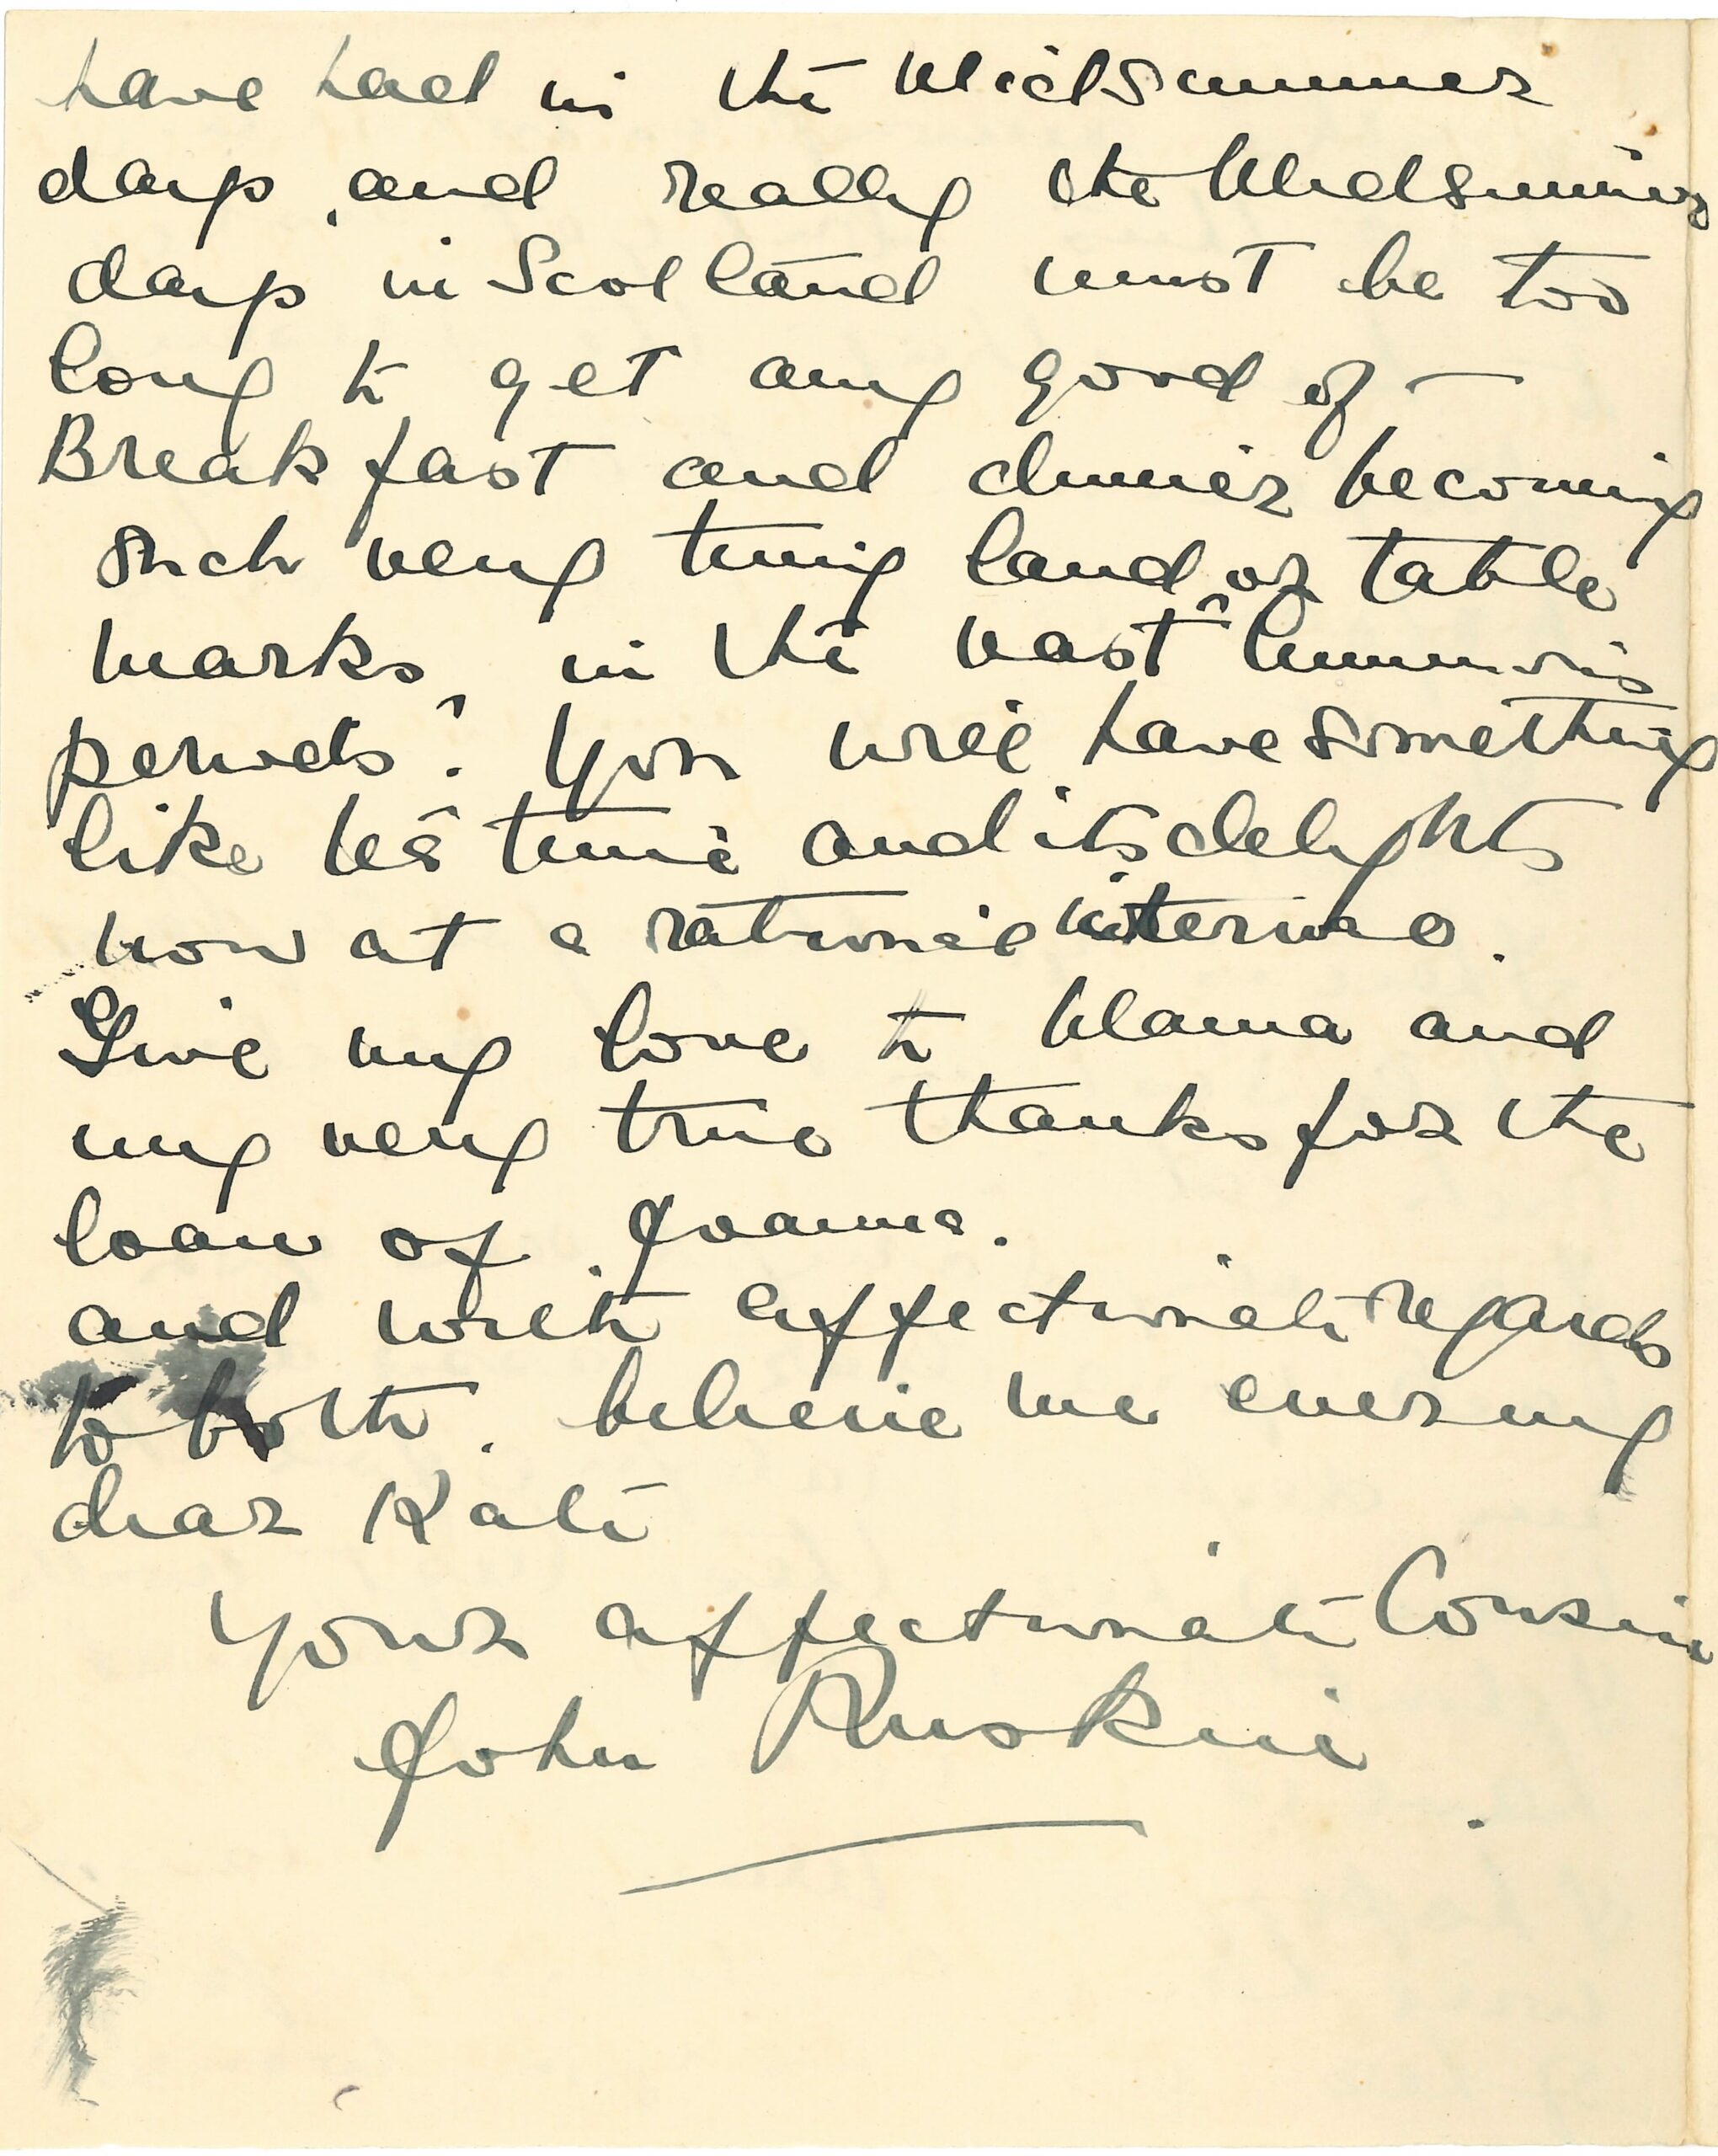 have had in the Midsummer
days, and really the Midsummer
days in Scotland must be too
long to get any good of —
Breakfast and dinner becoming
such very tiny land, or table
marks, in the vast luminous
periods. You will have something
like tea time and its delights
now at a rational interval.
Give my love to Mama and
my very true thanks for the
loan of Joanna.
and with affectionate regards
to both. believe me ever my
dear Kate
Yours affectionate Cousin
John Ruskin